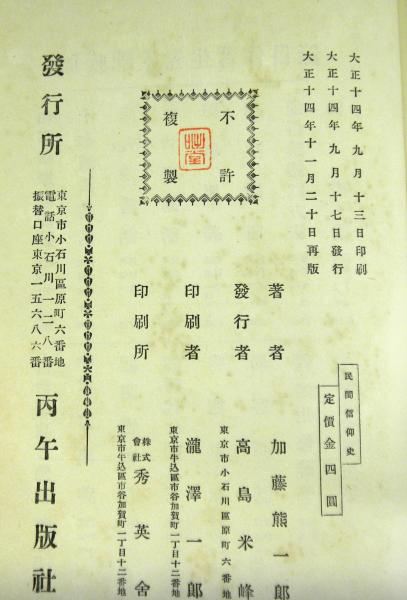 大正十四年九月十三日印刷
大正十四年九月十七日發行
大正十四年十一月二十日再版
不許
複製
民間信仰史
定價金四圓
著者 加藤熊一郎
發行者 高島米峰
東京市小石川區原町六番地
印刷者 瀧澤一郎
東京市牛込區市谷加賀町一丁目十二番地
印刷所 株式會社 秀英舍
東京市牛込區市谷加賀町一丁目十二番地
發行所 丙午出版社
東京市小石川區原町六番地
電話小石川一二八番
振替口座東京一五六八六番